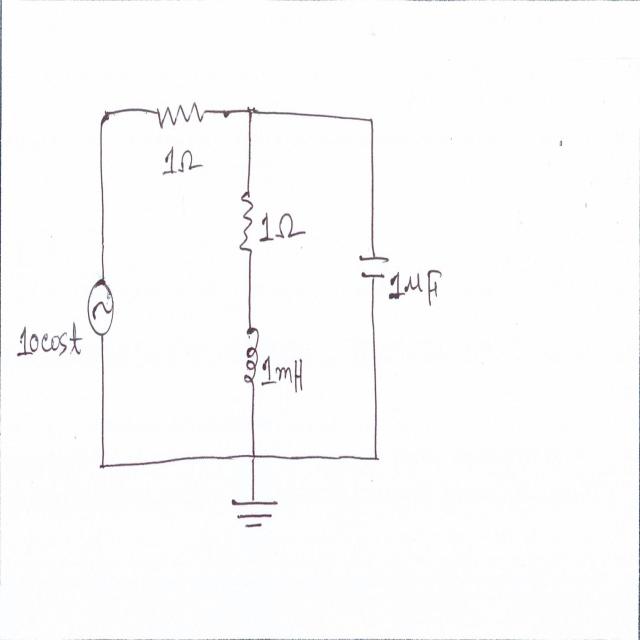 1Ω
1Ω
1μF
10cost
1mH